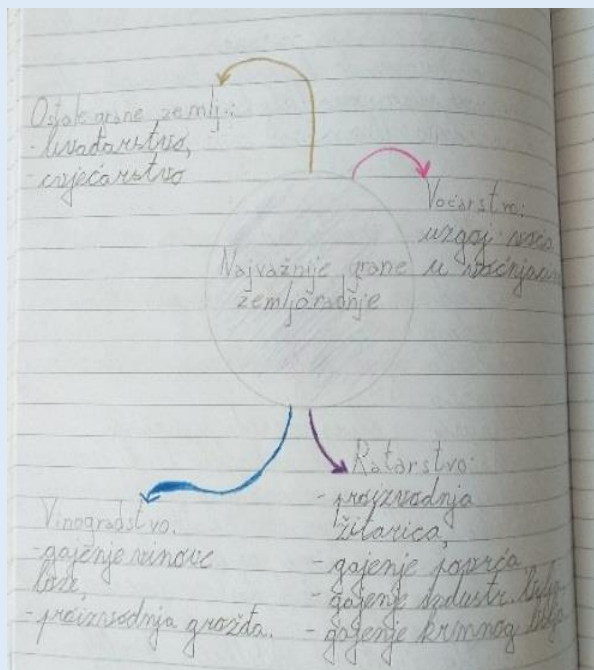 Ostale grane zemlj.:
- livadarstvo,
- cvjećarstvo
Voćarstvo:
uzgoj voća
u voćnjacima
Najvažnije grane
zemljoradnje
Vinogradstvo:
- gajenje vinove
loze,
- proizvodnja grožđa.
Ratarstvo:
- proizvodnja
žitarica,
- gajenje povrća
- gajenje industr. bilja
- gajenje krmnog bilja